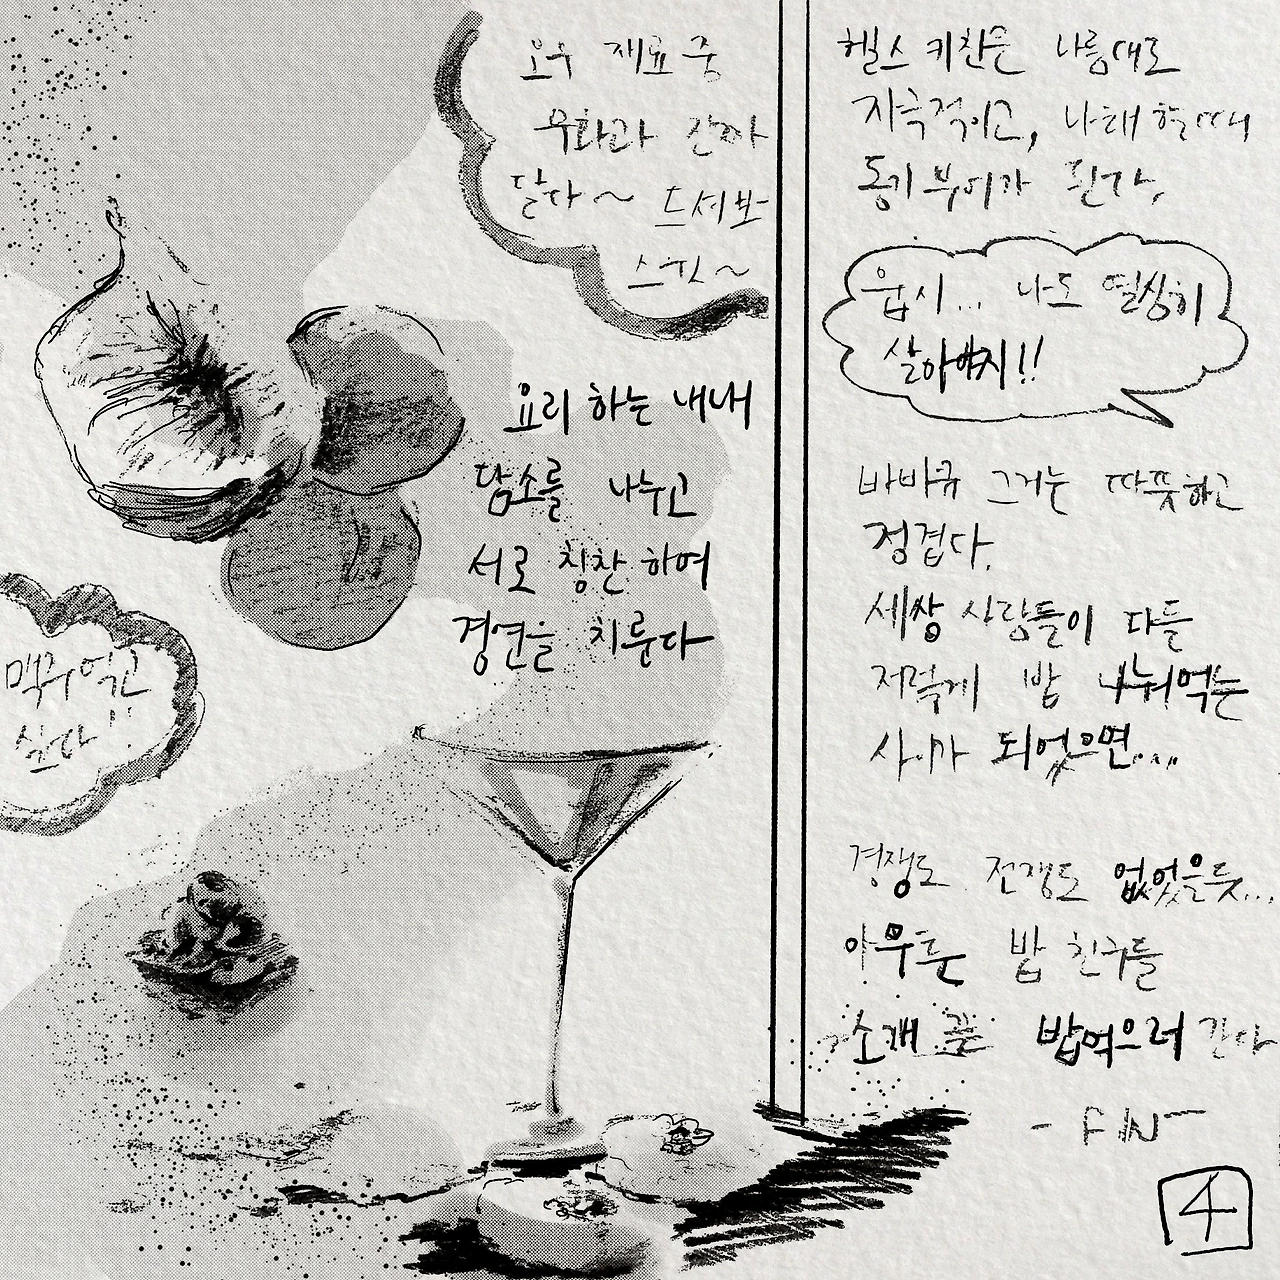 요우 재료 중
무화과 진짜
달다~ 드셔보
스윗~
요리 하는 내내
담소를 나누고
서로 칭찬 하며
경연을 치룬다
맥주 먹고
싶다!!
헬스 키친은 나름대로
자극적이고, 나태 할때
동기 부여가 된다.
웁시... 나도 열심히
살아야지!!
바바큐 그거는 따뜻하고
정겹다.
세상 사람들이 다들
저렇게 밥 나눠먹는
사이가 되었으면....
경쟁도 전쟁도 없었을듯...
아무튼 밥 친구들
소개 끝 밥먹으러 간다
- FIN -
4